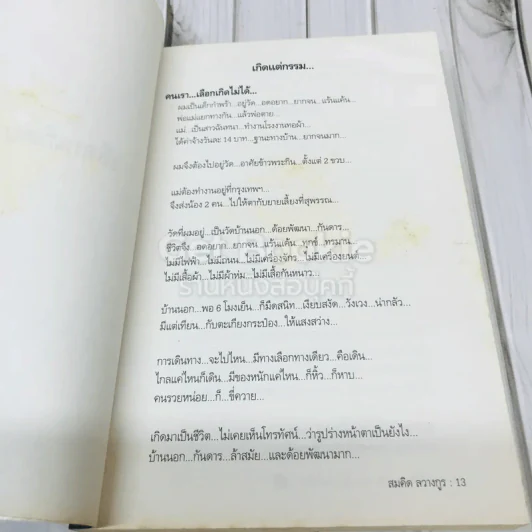 เกิดแต่กรรม...
คนเรา...เลือกเกิดไม่ได้...
ผมเป็นเด็กกำพร้า...อยู่วัด...อดอยาก...ยากจน...แร้นแค้น...
พ่อแม่แยกทางกัน...แล้วพ่อตาย...
แม่...เป็นสาวฉันทนา...ทำงานโรงงานทอผ้า...
ได้ค่าจ้างวันละ 14 บาท...ฐานะทางบ้าน...ยากจนมาก...
ผมจึงต้องไปอยู่วัด...อาศัยข้าวพระกิน...ตั้งแต่ 2 ขวบ...
แม่ต้องทำงานอยู่ที่กรุงเทพฯ...
จึงส่งน้อง 2 คน...ไปให้ตากับยายเลี้ยงที่สุพรรณ...
วัดที่ผมอยู่...เป็นวัดบ้านนอก...ด้อยพัฒนา...กันดาร...
ชีวิตจึง...อดอยาก...ยากจน...แร้นแค้น...ทุกข์...ทรมาน...
ไม่มีไฟฟ้า...ไม่มีถนน...ไม่มีเครื่องจักร...ไม่มีเครื่องยนต์...
ไม่มีเสื้อผ้า...ไม่มีผ้าห่ม...ไม่มีเสื้อกันหนาว...
ร้านหนังสือบุ๊คกี้
บ้านนอก...พอ 6 โมงเย็น...ก็มืดสนิท...เงียบสงัด...วังเวง...น่ากลัว...
มีแต่เทียน...กับตะเกียงกระป๋อง...ให้แสงสว่าง...
การเดินทาง...จะไปไหน...มีทางเลือกทางเดียว...คือเดิน...
ไกลแค่ไหนก็เดิน...มีของหนักแค่ไหน...ก็หิ้ว...ก็หาบ...
คนรวยหน่อย...ก็...ขี่ควาย...
เกิดมาเป็นชีวิต...ไม่เคยเห็นโทรทัศน์...ว่ารูปร่างหน้าตาเป็นยังไง...
บ้านนอก...กันดาร...ล้าสมัย...และด้อยพัฒนามาก...
สมคิด ลวางกูร : 13